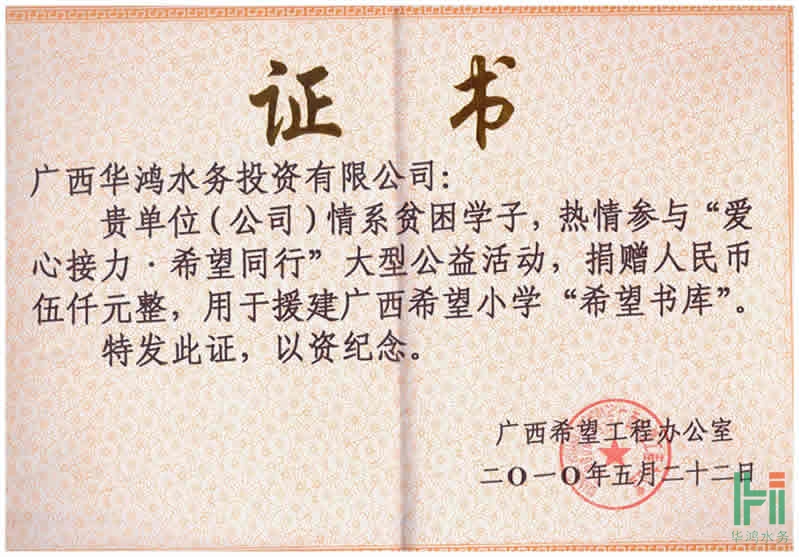 证书
广西华鸿水务投资有限公司:
贵单位(公司)情系贫困学子,热情参与“爱
心接力·希望同行”大型公益活动,捐赠人民币
伍仟元整,用于援建广西希望小学“希望书库”。
特发此证,以资纪念。
广西希望工程办公室
二〇一〇年五月二十二日
华鸿水务